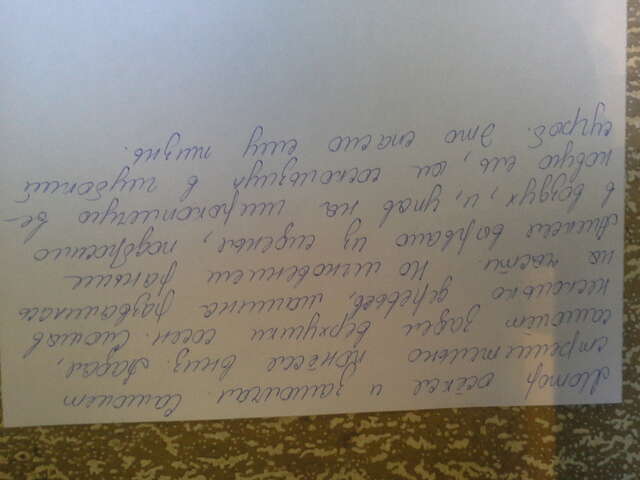 Мотор осёкся и замолчал. Самолёт
стремительно понёсся вниз. Падая,
самолёт задел верхушки сосен. Сломав
несколько деревьев, машина развалилась
на части. Но мгновением раньше
Алексея вырвало из сиденья, подбросило
в воздух, и, упав на широкоплечую ве-
ковую ель, он соскользнул в глубокий
сугроб. Это спасло ему жизнь.